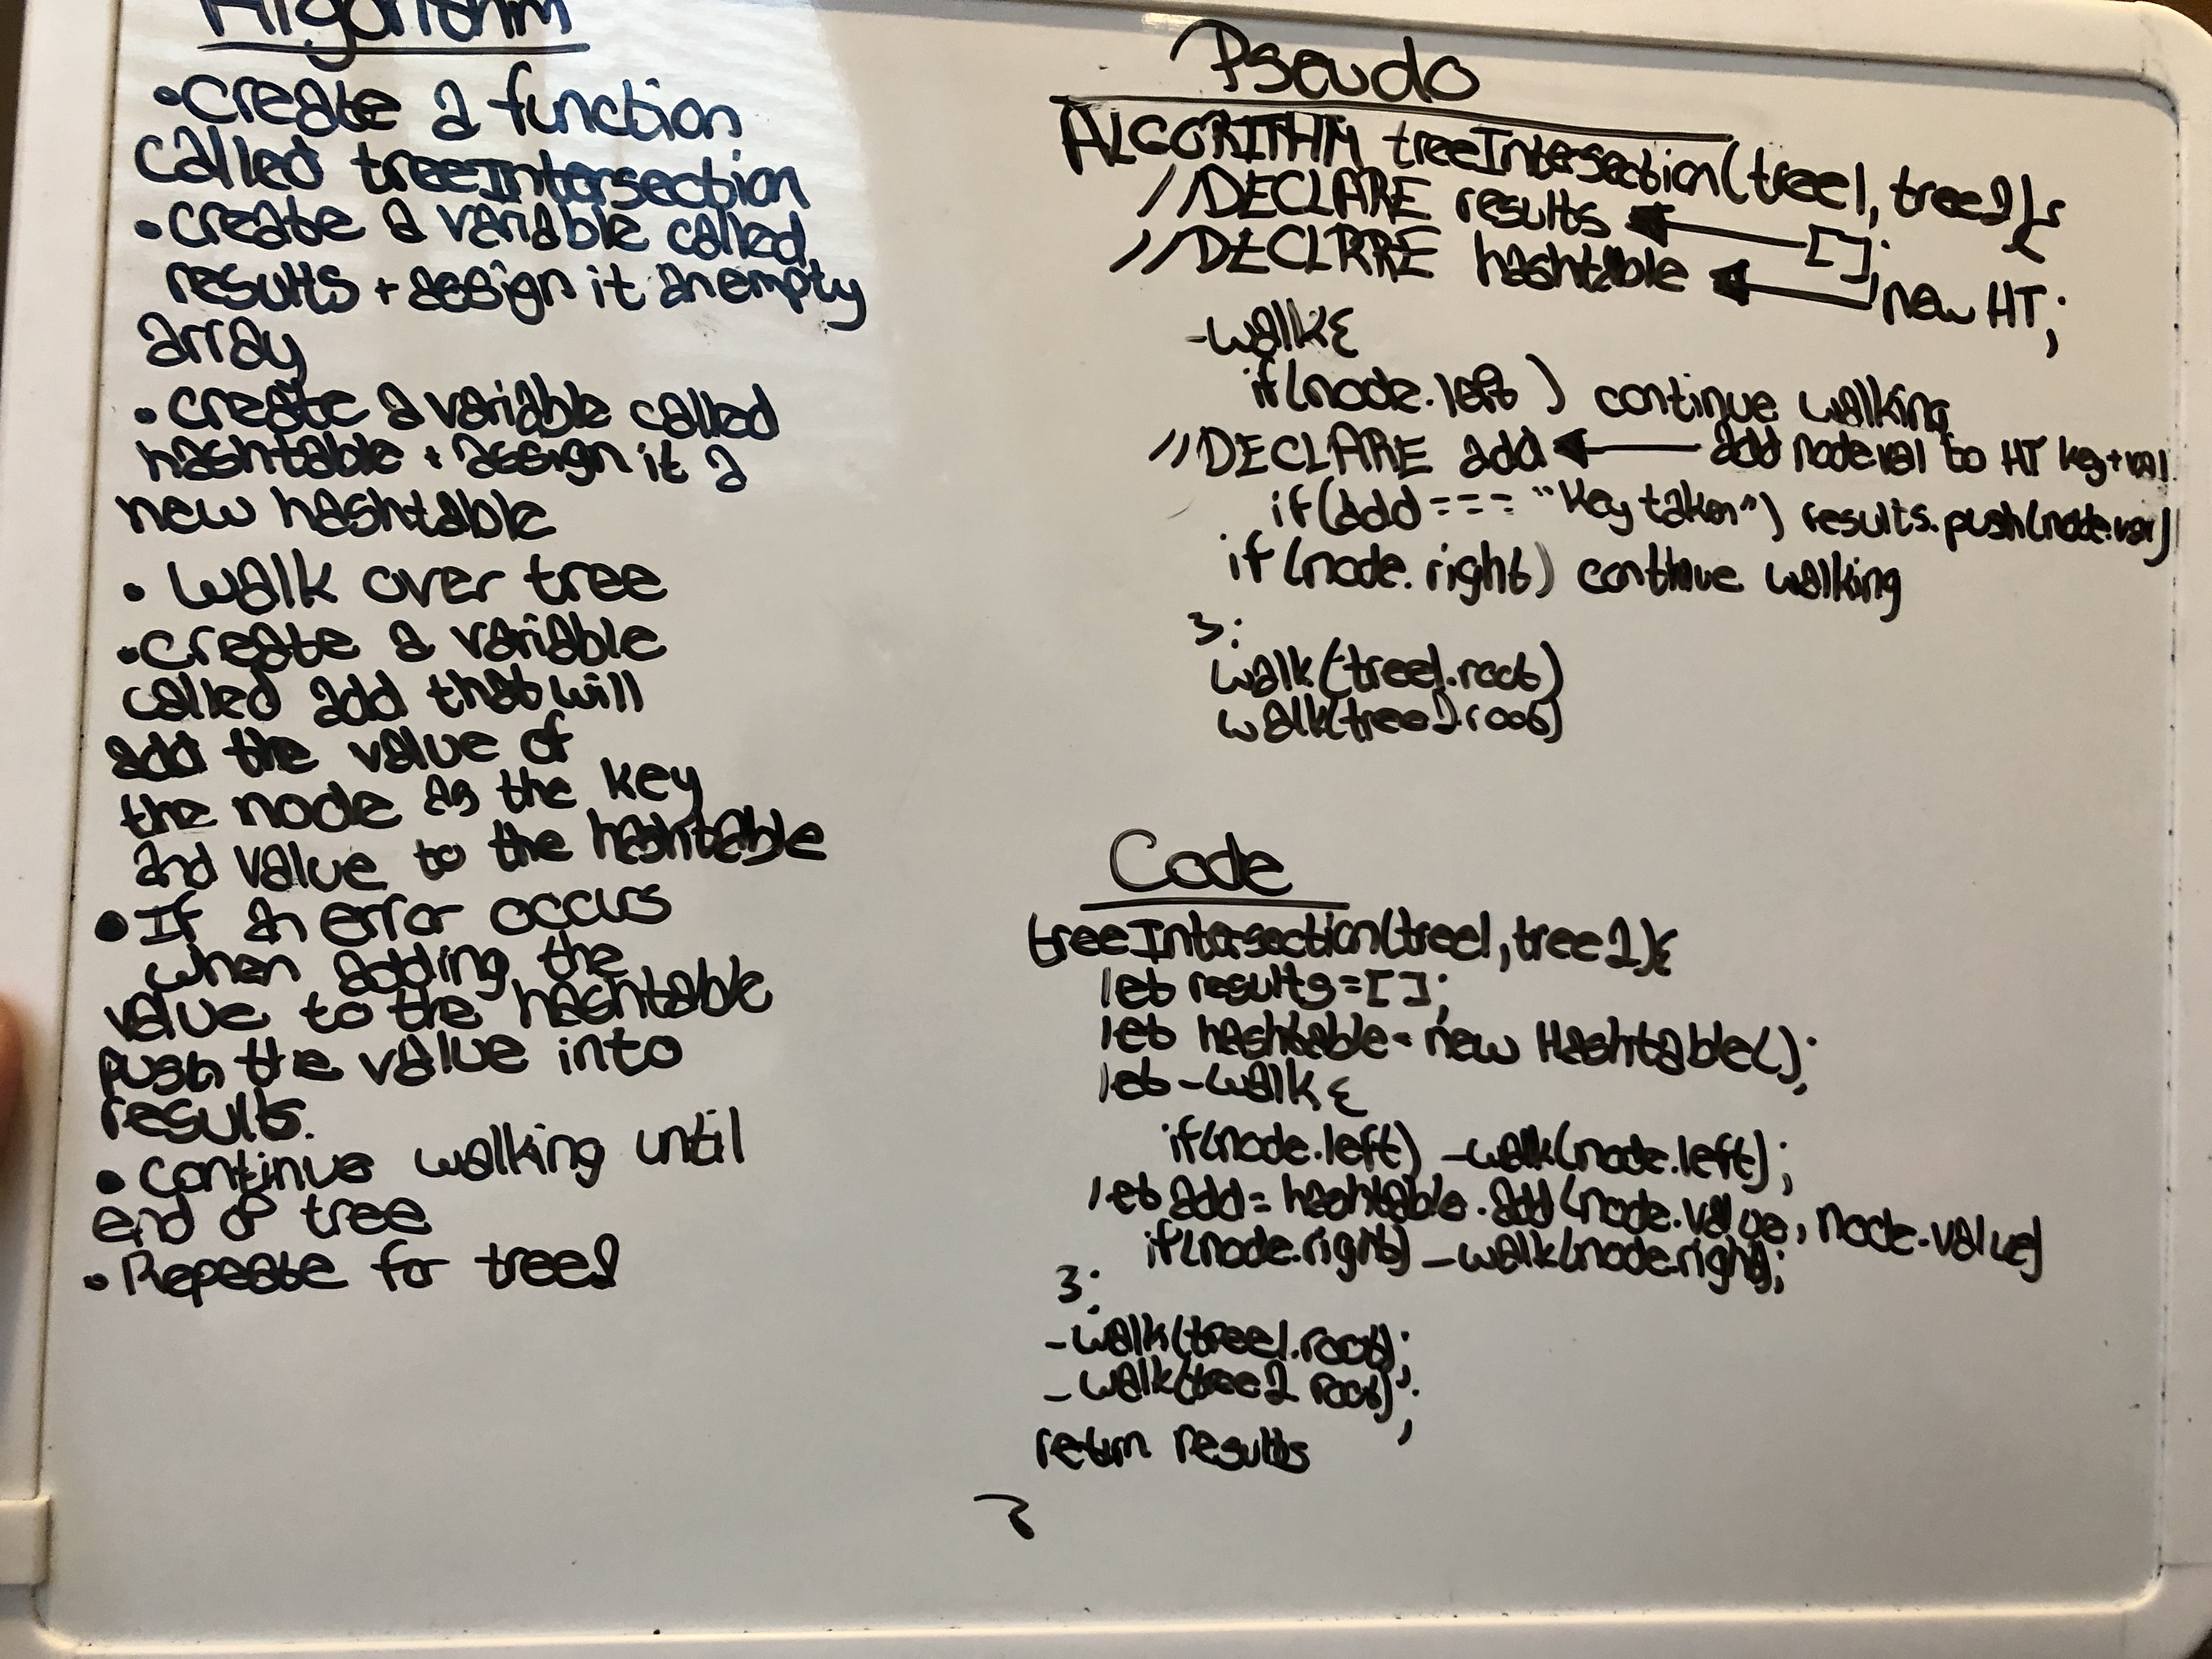 Algorithm
• create a function
called treeIntersection
• create a variable called
results + assign it an empty
array
• create a variable called
hashtable + assign it a
new hashtable
• walk over tree
• create a variable
called add that will
add the value of
the node as the key
and value to the hashtable
• If an error occurs
when adding the
value to the hashtable
push the value into
results.
• continue walking until
end of tree
• Repeate for tree2
Pseudo
ALGORITHM treeIntersection(tree1, tree2){
//DECLARE results ← [];
//DECLARE hashtable ← new HT;
_walk{
if(node.left) continue walking
//DECLARE add ← add node.val to HT key+val
if(add === "Key taken") results.push(node.val)
if(node.right) continue walking
};
walk(tree1.root)
walk(tree2.root)
Code
treeIntersection(tree1, tree2){
let results = [];
let hashtable = new Hashtable();
let _walk{
if(node.left) _walk(node.left);
let add = hashtable.add(node.value, node.value)
if(node.right) _walk(node.right);
};
_walk(tree1.root);
_walk(tree2.root);
return results
}